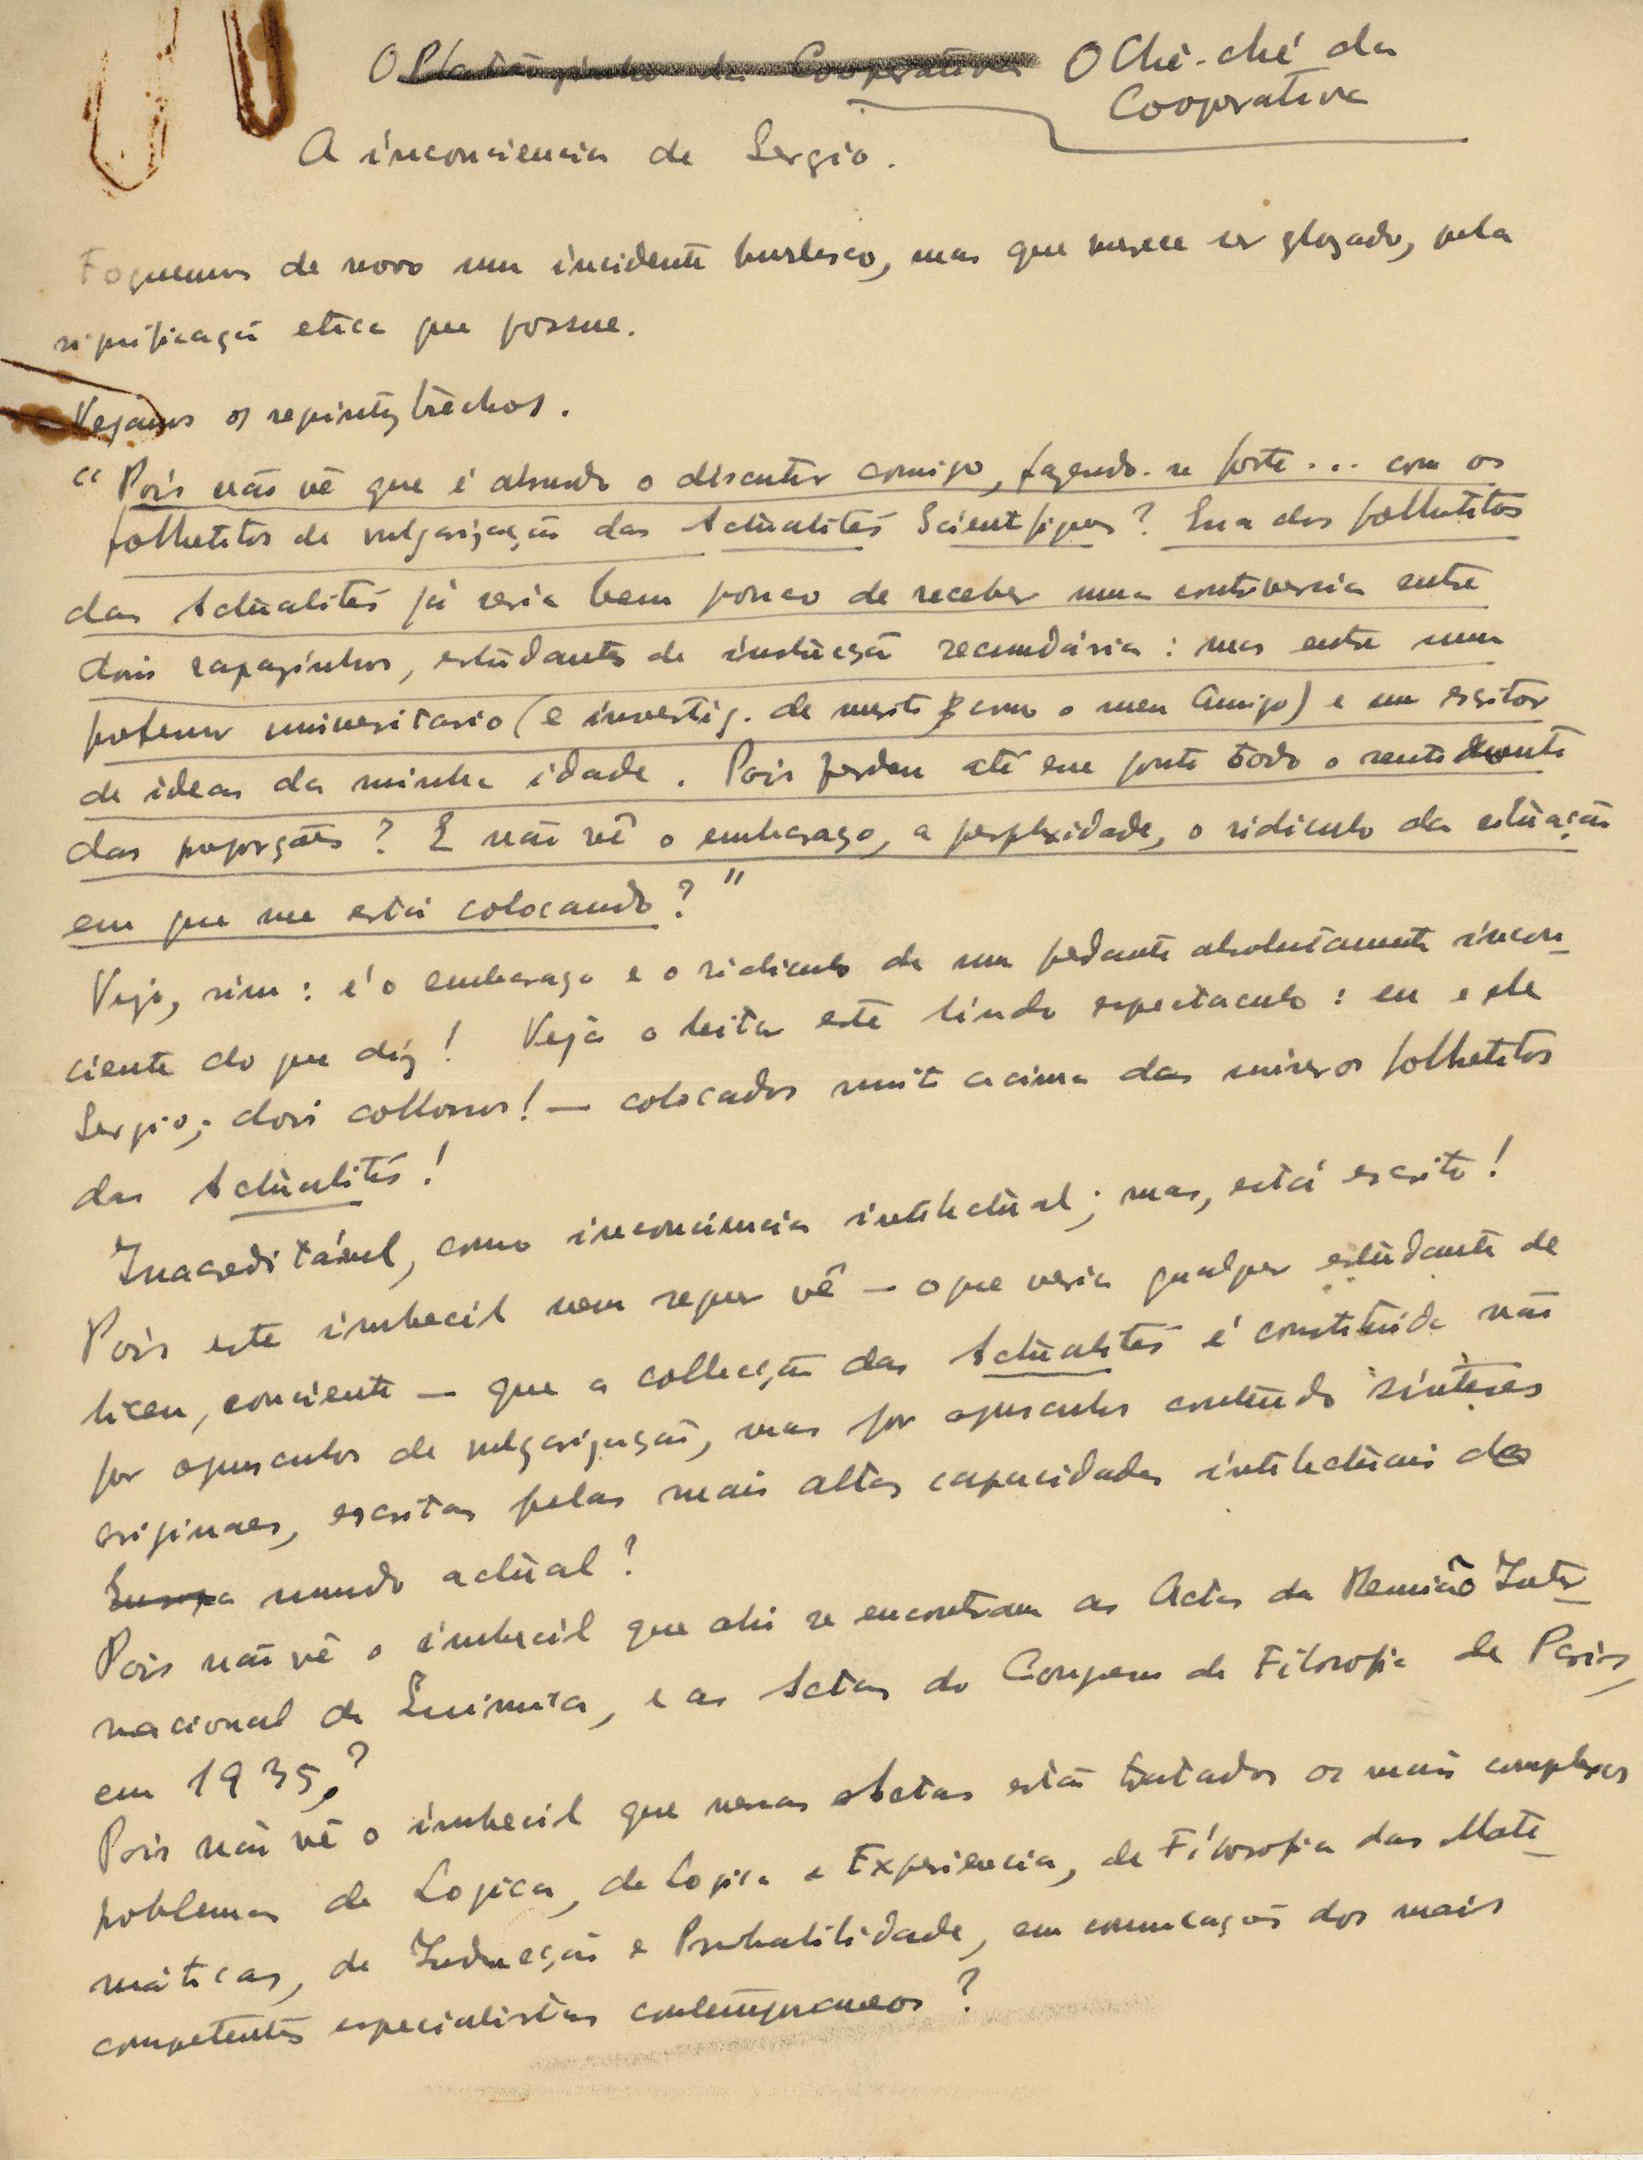 O Platãozinho da Cooperativa O Ché-ché da
Cooperativa
A inconciencia de Sergio.
Foquemos de novo um incidente burlesco, mas que merece ser glozado, pela
significação etica que possue.
Vejamos os seguintes trechos.
"Pois não vê que é absurdo o discutir comigo, fazendo-se forte... com os
folhetitos de vulgarização das Actualités Scientifiques? Isso dos folhetitos
das Actualités já seria bem pouco de receber numa controversia entre
dois rapazinhos, estudantes de instrucção secundária: mas entre um
professor universitario (e investig. de merito como o meu Amigo) e um escritor
de ideas da minha idade. Pois perdeu até esse ponto todo o sentimento
das proporções? E não vê o embaraço, a perplexidade, o ridiculo da situação
em que me está colocando?"
Vejo, sim: é o embaraço e o ridiculo de um pedante absolutamente incon-
ciente do que diz! Veja o leitor este lindo espectaculo: eu e ele
Sergio; dois collossos! — colocados muito acima das miseros folhetitos
das Actualités!
Inacreditável, como inconciencia intelectual; mas, está escrito!
Pois este imbecil nem sequer vê — o que veria qualquer estudante de
liceu, conciente — que a collecção das Actualités é constituida não
por opusculos de vulgarização, mas por opusculos contendo sinteses
originaes, escritas pelas mais altas capacidades intelectuais do
Europa mundo actual?
Pois não vê o imbecil que ahi se encontram as Actas da Reunião Inter-
nacional de Quimica, e as Actas do Congresso de Filosofia de Paris,
em 1935?
Pois não vê o imbecil que nessas Actas estão tratados os mais complexos
problemas de Logica, de Logica e Experiencia, de Filosofia das Mate-
máticas, de Inducção e Probabilidade, em comunicações dos mais
competentes especialistas contemporaneos?